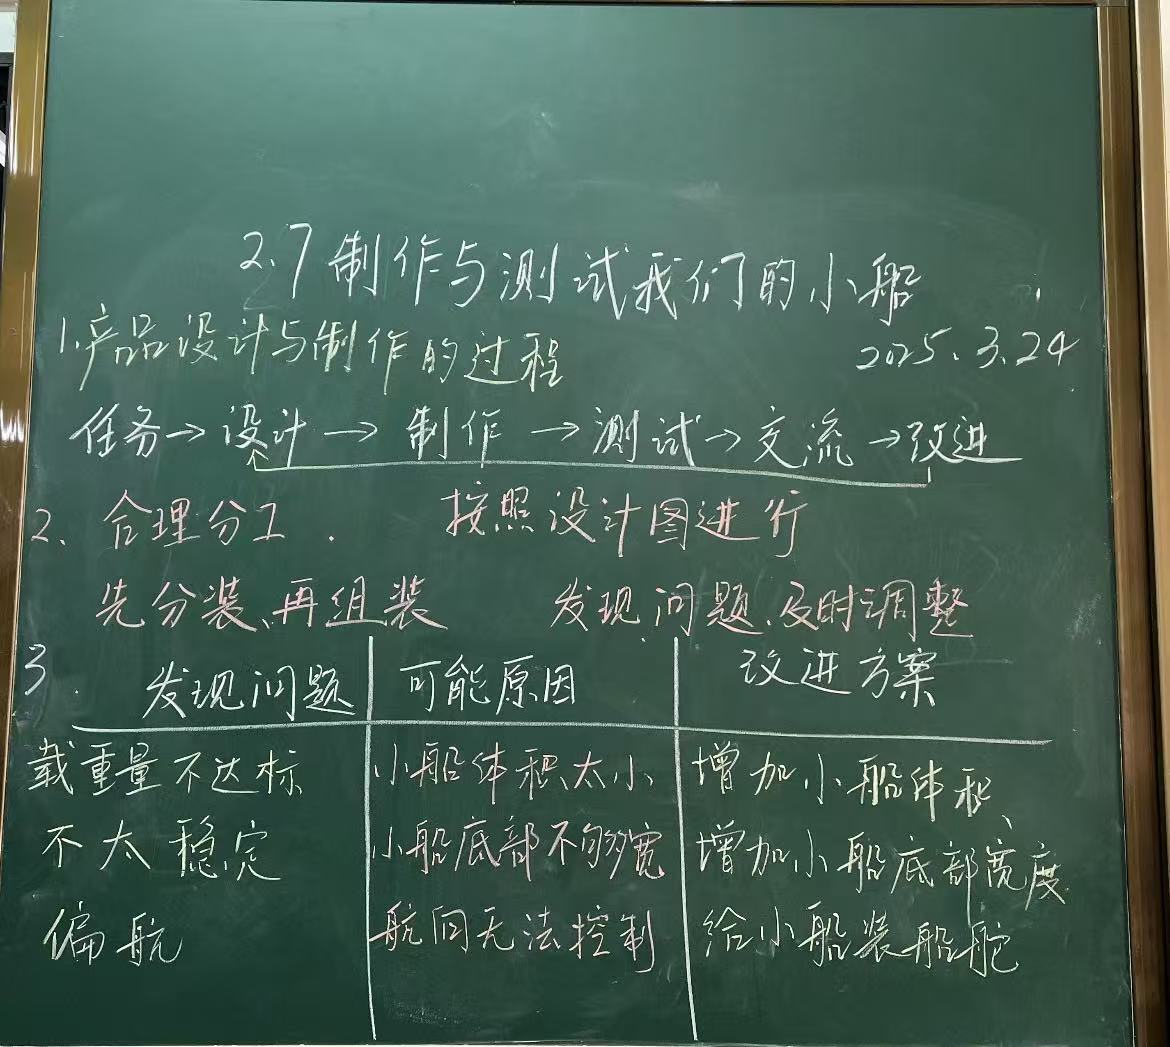 2.7 制作与测试我们的小船
1.产品设计与制作的过程 2025.3.24
任务→设计→制作→测试→交流→改进
2、合理分工. 按照设计图进行
先分装、再组装 发现问题、及时调整
3. 发现问题 可能原因 改进方案
载重量不达标 小船体积太小 增加小船体积
不太稳定 小船底部不够宽 增加小船底部宽度
偏航 航向无法控制 给小船装船舵